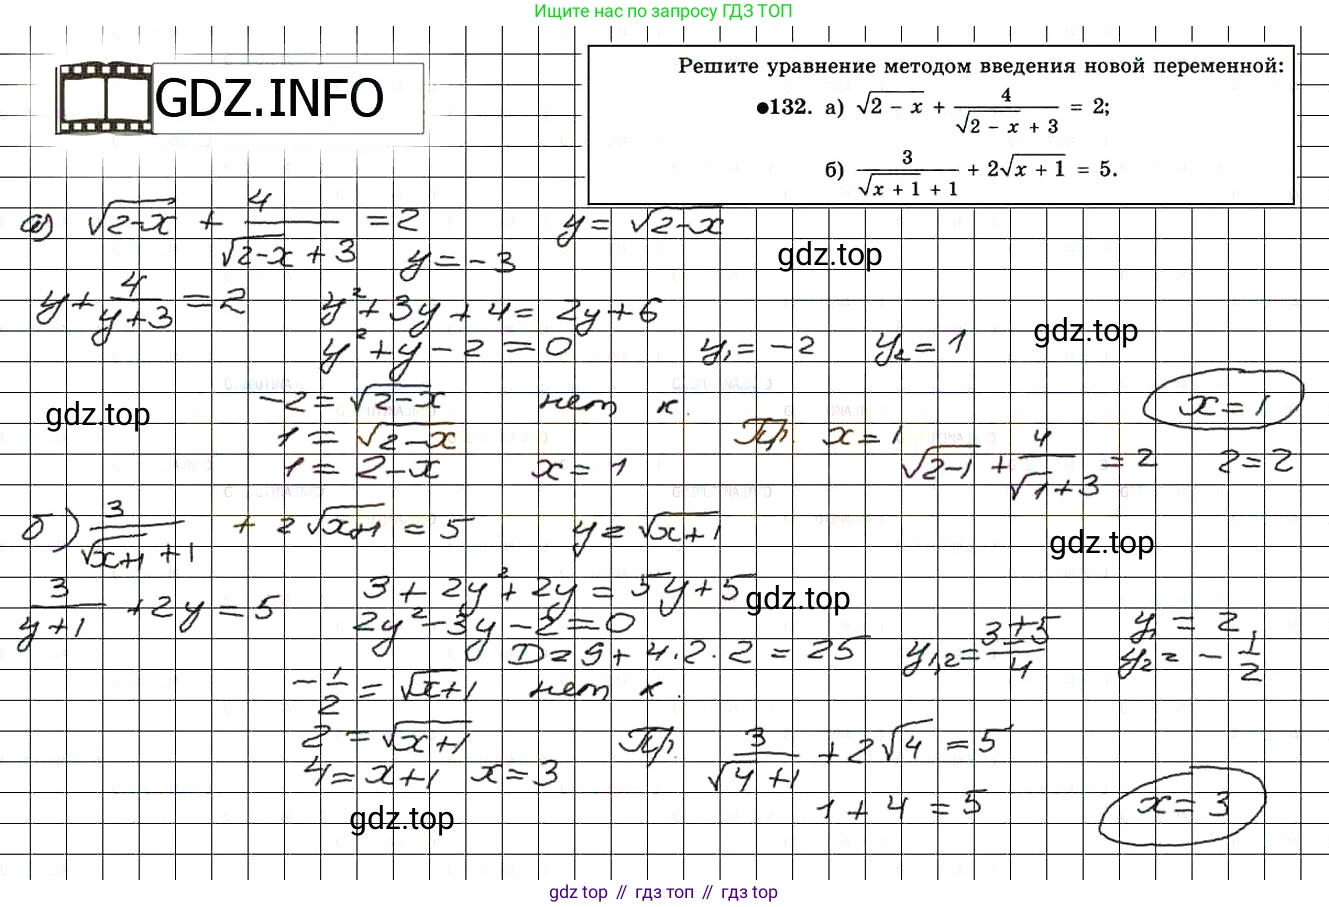 Ищите нас по запросу ГДЗ ТОП
GDZ.INFO
Решите уравнение методом введения новой переменной:
●132. а) √(2 − x) + 4/(√(2 − x) + 3) = 2;
б) 3/(√(x + 1) + 1) + 2√(x + 1) = 5.
а) √(2-x) + 4/(√(2-x) + 3) = 2 y = √(2-x)
y = -3
gdz.top
y + 4/(y+3) = 2 y² + 3y + 4 = 2y + 6
gdz.top
y² + y - 2 = 0 y₁ = -2 y₂ = 1
-2 = √(2-x) нет к. x = 1
gdz.top
1 = √(2-x) Пр. x = 1
1 = 2-x x = 1 √(2-1) + 4/(√1+3) = 2 2 = 2
б) 3/(√(x+1) + 1) + 2√(x+1) = 5 y = √(x+1)
gdz.top
3/(y+1) + 2y = 5 3 + 2y² + 2y = 5y + 5
gdz.top
2y² - 3y - 2 = 0 y₁ = 2
D = 9 + 4·2·2 = 25 y₁,₂ = (3±5)/4 y₂ = -1/2
-1/2 = √(x+1) нет к.
2 = √(x+1) Пр. 3/(√4+1) + 2√4 = 5
4 = x+1 x = 3
1 + 4 = 5 x = 3
gdz.top
gdz top // гдз топ // gdz top